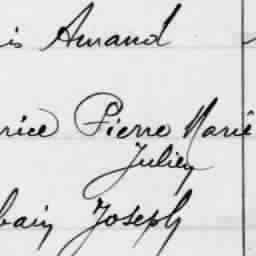 is Amand
rice Pierre Marie
Julien
bain Joseph